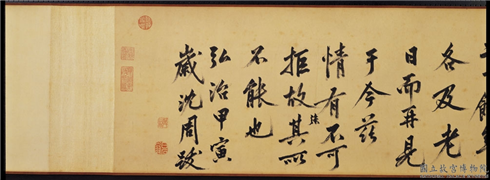 各及老
日而再見
于今茲
情有不可
拒故其所
不能也
弘治甲寅
歲沈周跋
國立故宮博物院